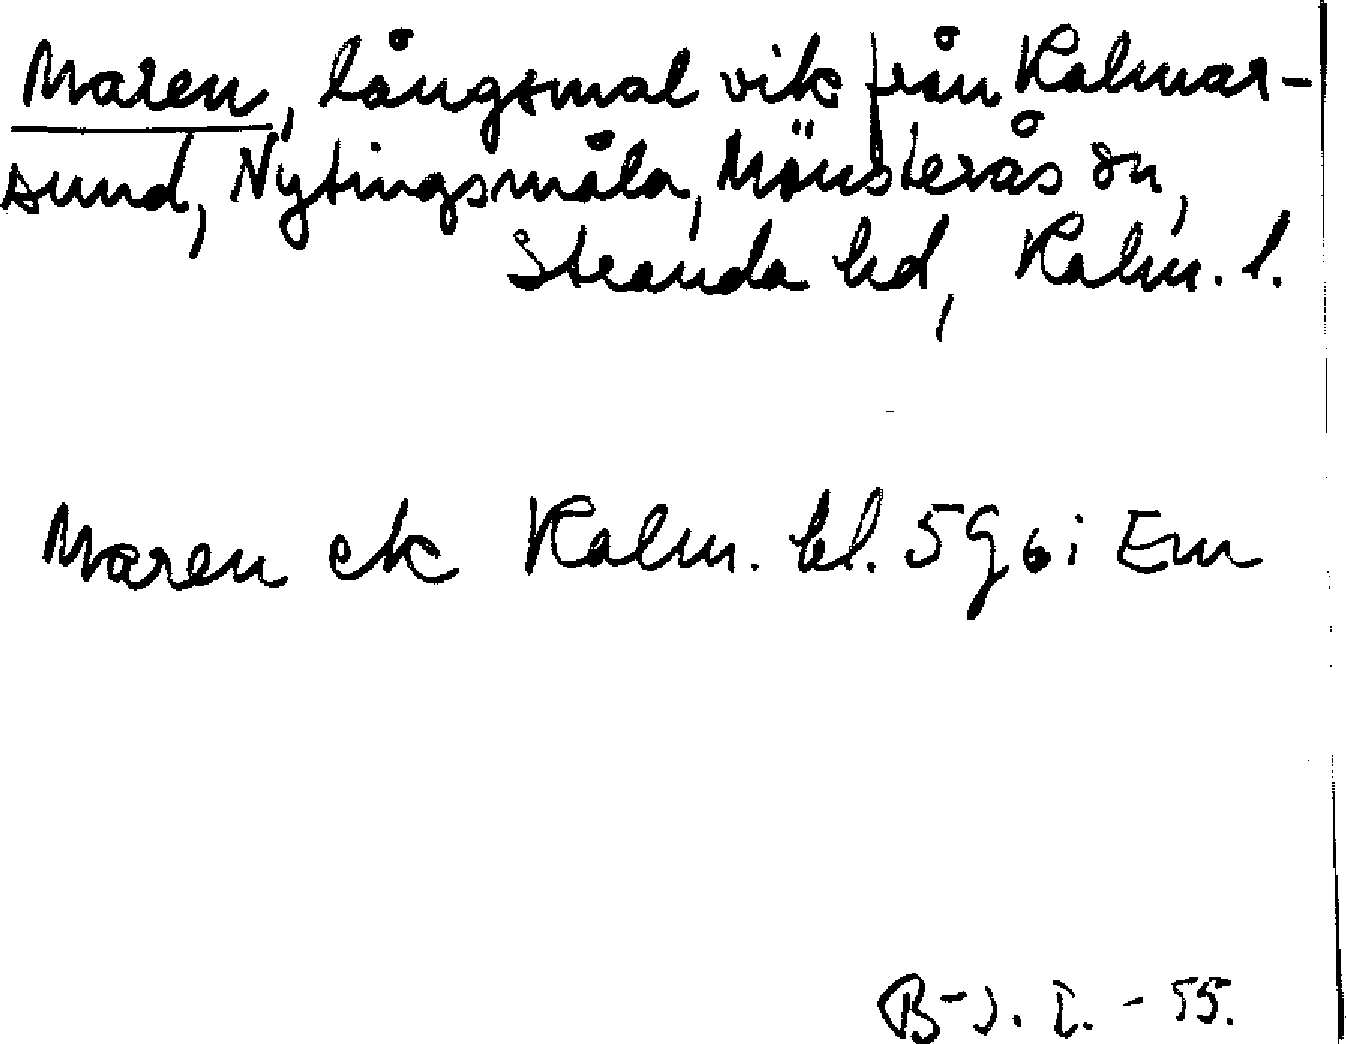 Maren, långsmal vik från Kalmar-
sund, Nytingsmåla, Mönsterås sn,
Stranda hd, Kalm. l.
Maren ek Kalm. bl. 5 9 6 i Em
B-J. I. - 55.